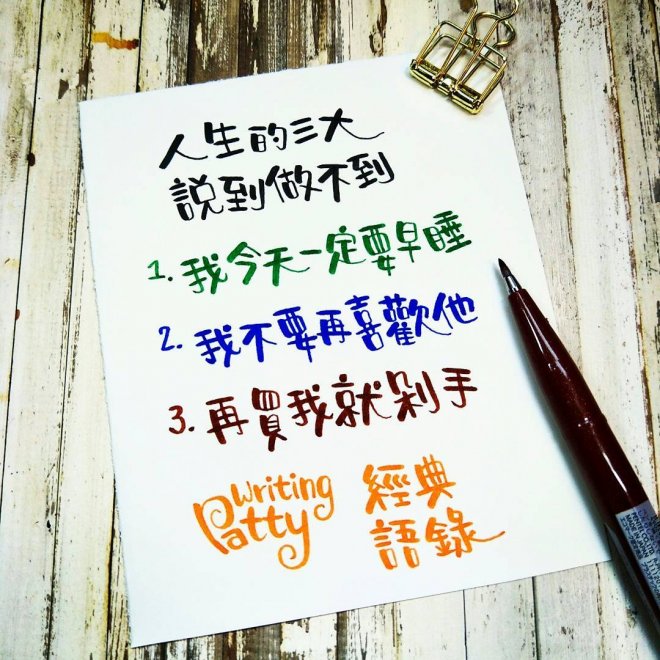 人生的三大
說到做不到
1. 我今天一定要早睡
2. 我不要再喜歡他
3. 再買我就剁手
Writing
Patty
經典
語錄